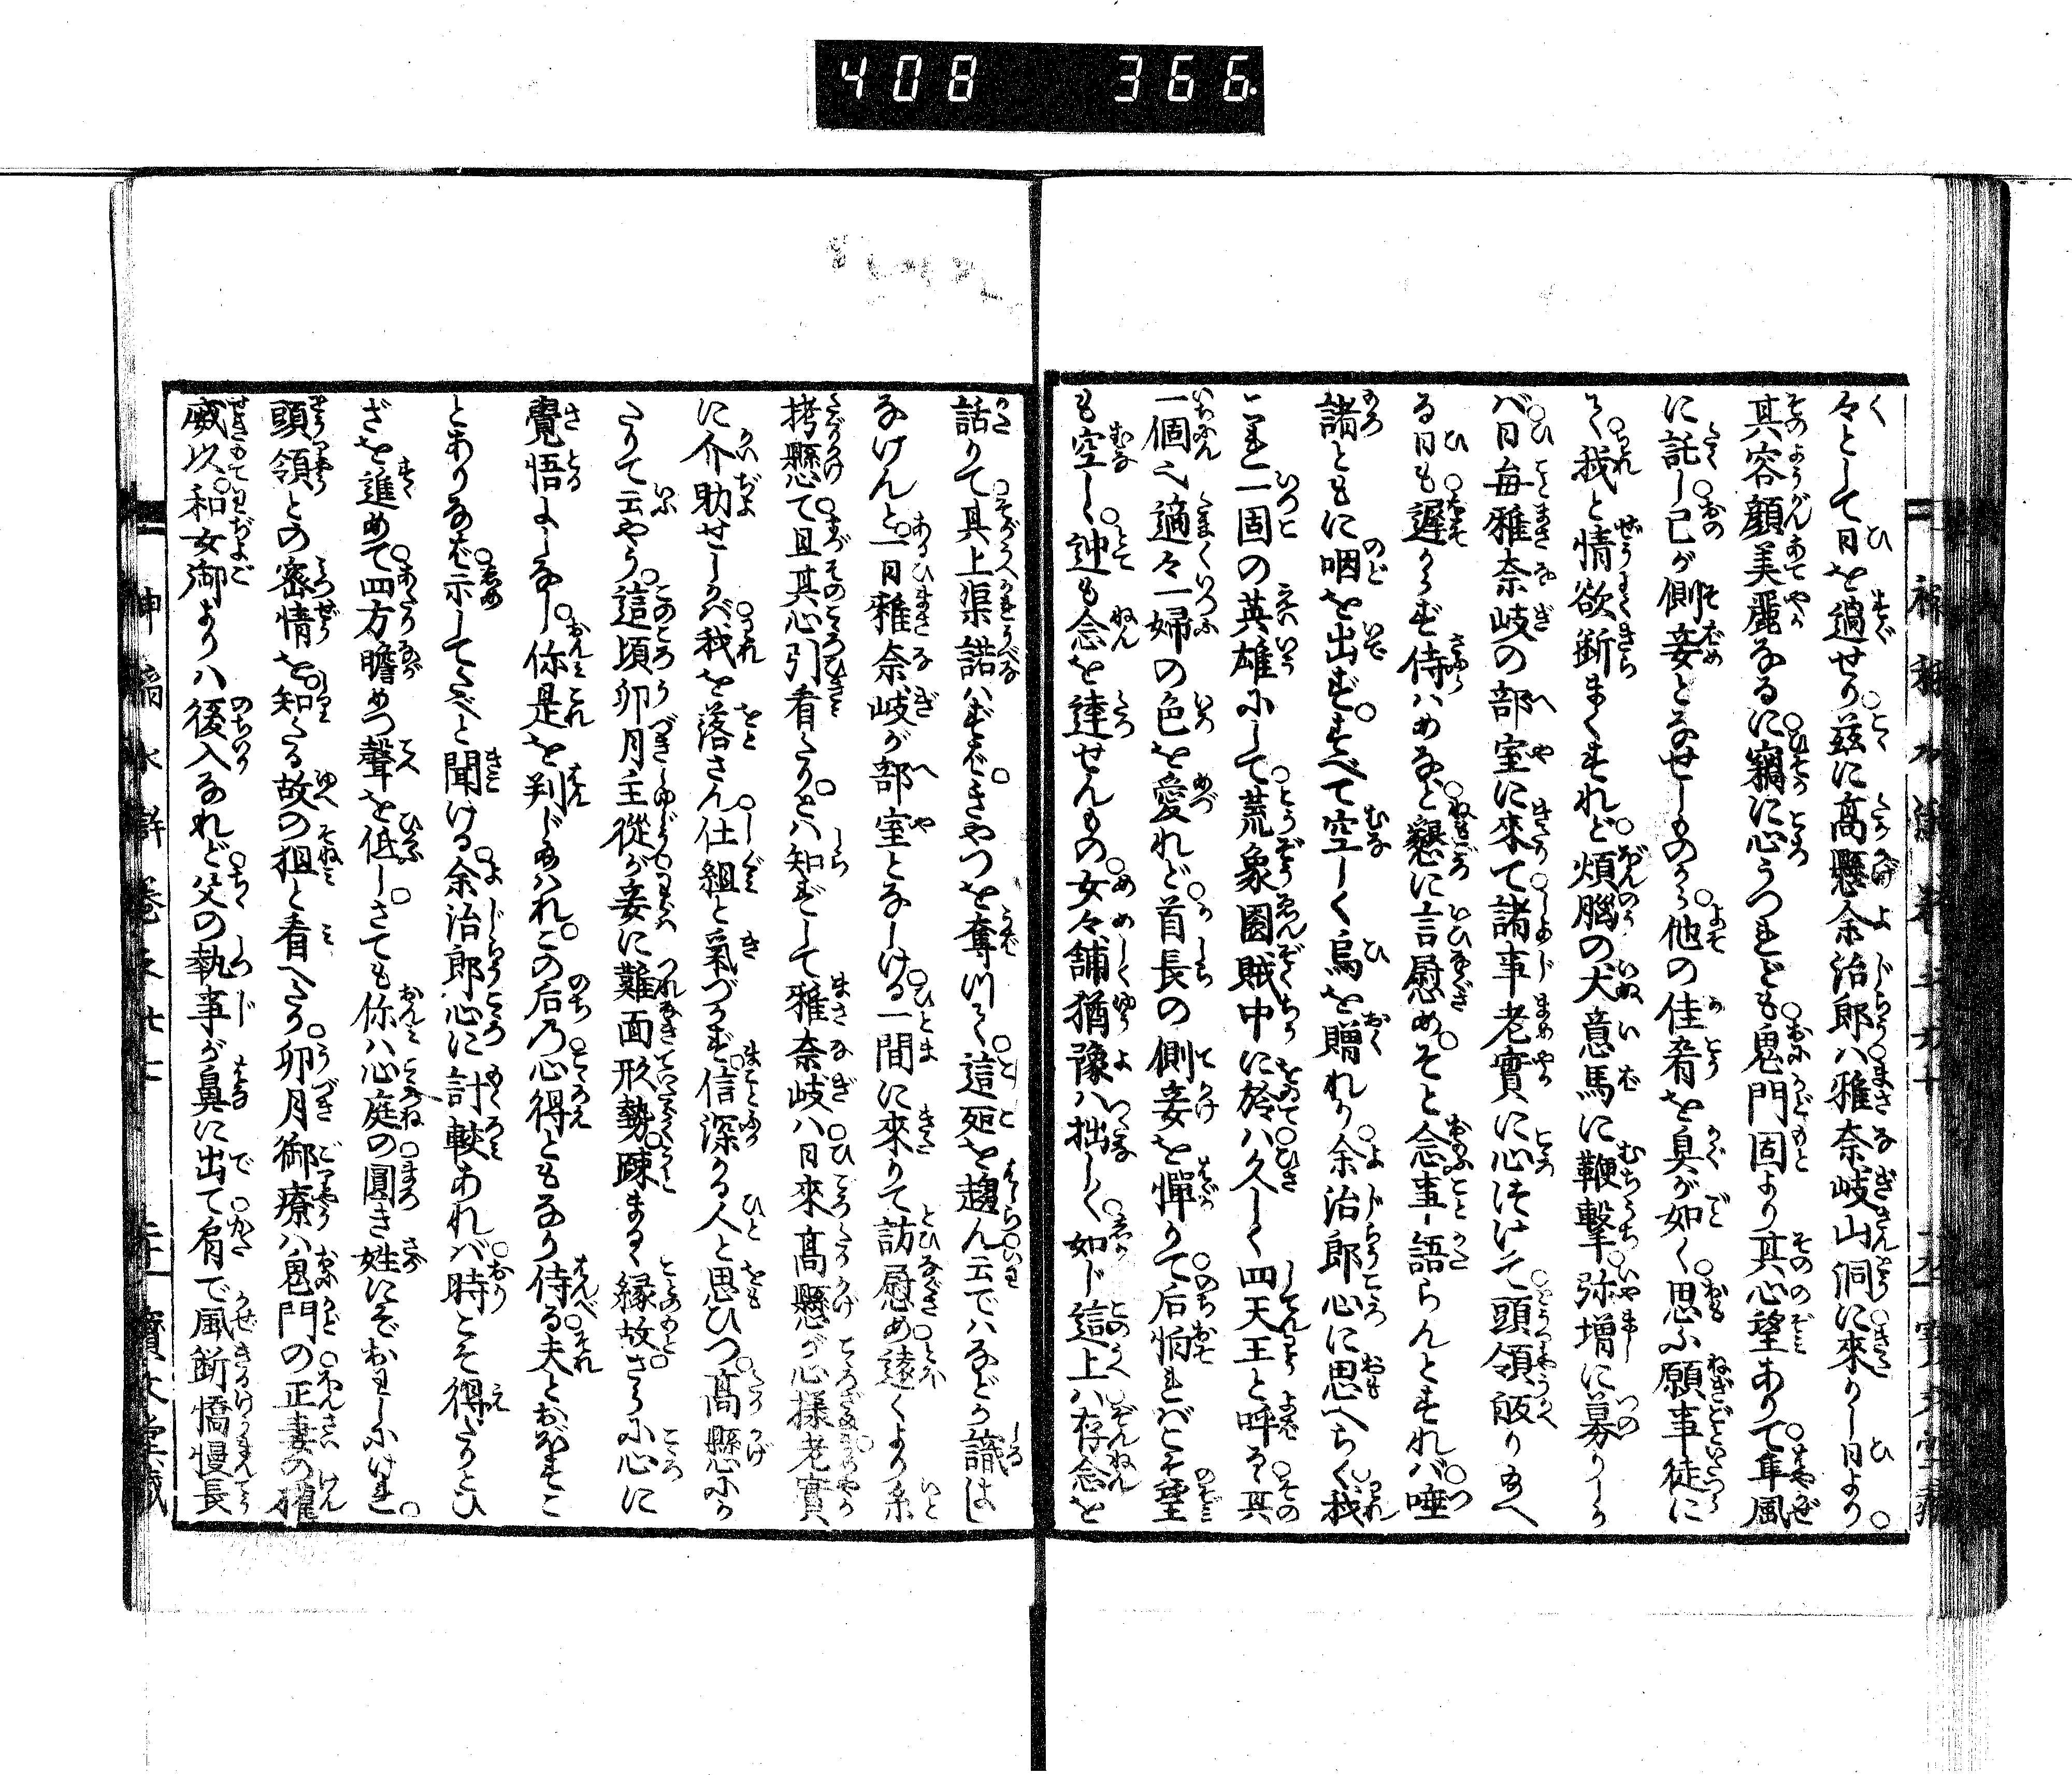 408 366
々として日を過せり茲に高懸余治郎ハ雅奈岐山洞に來りし日より
其容顔美麗なるに竊に心うつれども鬼門固より其心望ありて隼風
に託し己が側妾となせしものから他の佳肴を具が如く思ふ願事徒に
て我と情欲断まくすれど煩腦の犬意馬に鞭撃弥増に募りしか
バ日毎雅奈岐の部室に來て諸事老實に心つけそ頭領皈り玉へ
る日も遅からず侍ハめなど懇に言慰めそと念事語らんとすれバ唾
諸ともに咽を出ずすべて空しく烏を贈れり余治郎心に思へらく我
これ一固の英雄にして荒象園賊中に於ハ久しく四天王と呼るゝ其
一個也適々一婦の色を愛れど首長の側妾を憚りて后怕れバこそ望
も空しく迚も念を達せんもの女々舗猶豫ハ拙しく如じ這上ハ存念を
話りて其上渠諾ハずバきやつを奪ハく這死を趨ん云でハなどか識は
なけんと一日雅奈岐が部室となしける一間に來りて訪慰め遠くより糸
拷懸て且其心引看たりとハ知ずして雅奈岐ハ日來高懸が心様老實
に介助せしかバ我を落さん仕組と氣づかず信深かる人と思ひつ高懸にか
たりて云やう這頃卯月主從が妾に難面形勢疎まるゝ縁故さらに心に
覺悟よしなし你是を判じ玉ハれこの后乃心得ともなり侍る夫とおぼすこ
とありなバ示してたべと聞ける余治郎心に計較あれバ時こそ得たりとひ
ざを進めて四方瞻めつ聲を低しさても你ハ心庭の圓き姓にぞおわしにけれ
頭領との密情を知たる故の狙と看へたり卯月御療ハ鬼門の正妻の權
威以和女御よりハ後入なれど父の執事が鼻に出て肩で風断憍慢長
神稲水滸 巻之廿七
寳文堂藏